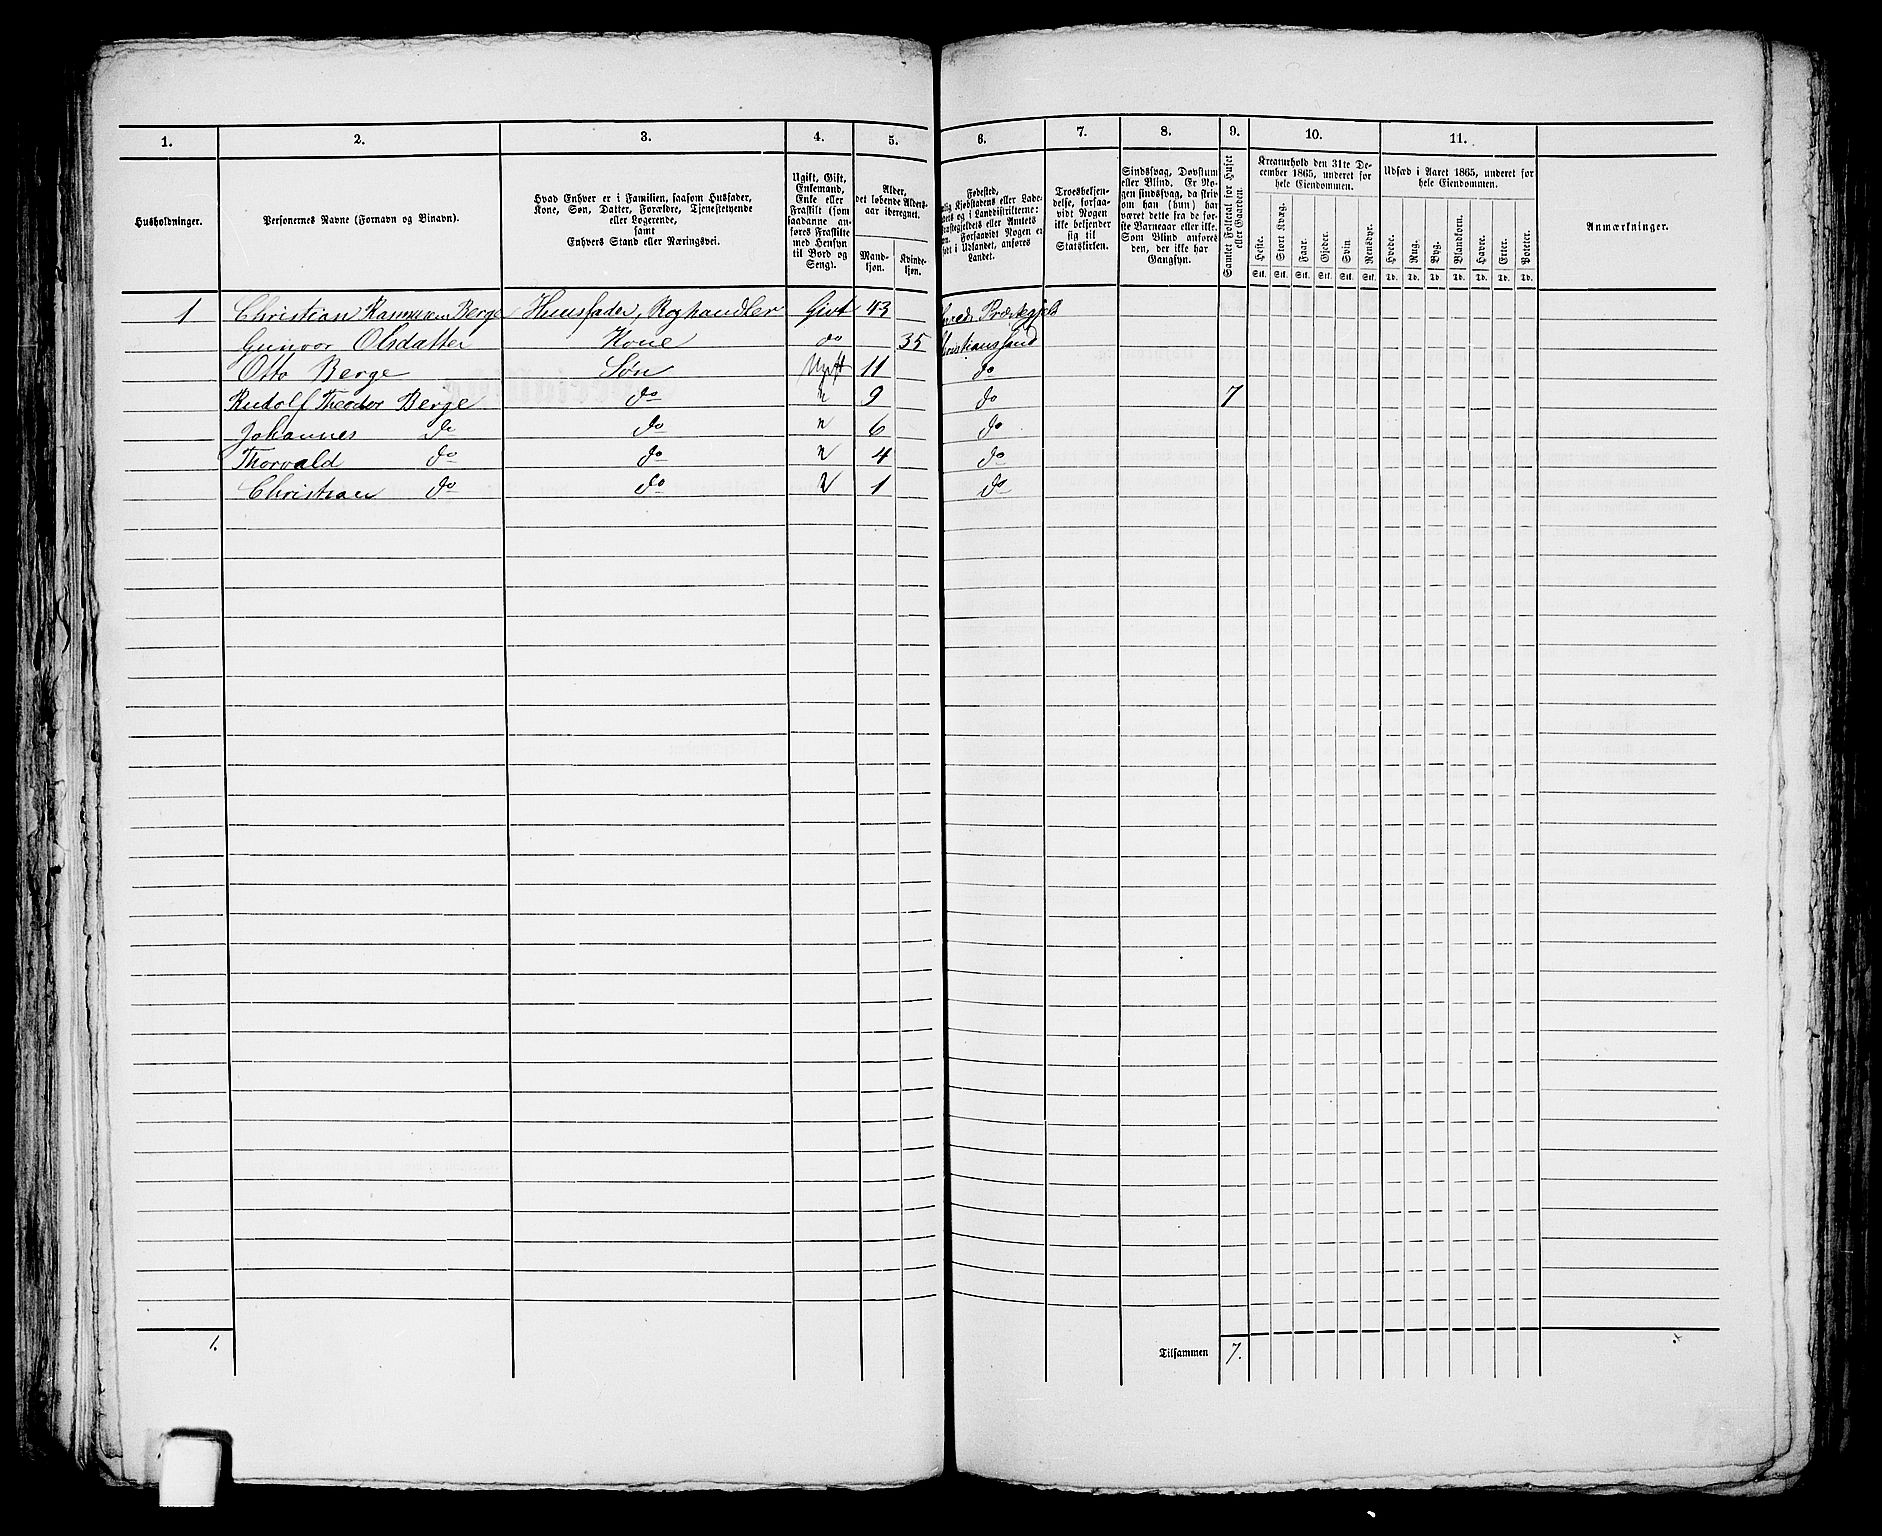 1. 2. 3. 4. 5. 6. 7. 8. 9. 10. 11.
Husholdninger.
Personernes Navne (Fornavn og Binavn).
Hvad Enhver er i Familien, saasom Husfader,
Kone, Søn, Datter, Forældre, Tjenestetyende
eller Logerende,
samt
Enhvers Stand eller Næringsvei.
Ugift, Gift,
Enkemand,
Enke eller
Fraskilt (som
saadanne an-
føres Fraskilte
med Hensyn
til Bord og
Seng).
Alder,
det løbende Alders-
aar iberegnet.
Mand-
kjøn.
Kvinde-
kjøn.
Fødested,
lig Kjøbstadens eller Lade-
dets og i Landdistrikterne:
ræstegjeldets eller Amtets
vn. Forsaavidt Nogen er
født i Udlandet, anføres
Landet.
Troesbekjen-
delse, forsaa-
vidt Nogen
ikke bekjender
sig til
Statskirken.
Sindssvag, Døvstum
eller Blind. Er No-
gen sindssvag, da skriv
om han (hun) har
været dette fra de før-
ste Barneaar eller ikke.
Som Blind anføres
den, der ikke har
Gangsyn.
Samlet Folketal for Huset
eller Gaarden.
Kreaturhold den 31te De-
cember 1865, underet for
hele Eiendommen.
Heste. Stort Kvæg. Faar. Gjeder. Svin. Rensdyr.
Stk. Stk. Stk. Stk. Stk. Stk.
Udsæd i Aaret 1865, underet for
hele Eiendommen.
Hvede. Rug. Byg. Blandkorn. Havre. Erter. Poteter.
Td. Td. Td. Td. Td. Td. Td.
Anmærkninger.
1 Christian Rasmussen Berge Huusfader, Roghandler Givt 43 Præstegjeld
Gunvor Olsdatter Kone do 35 hristianssand
Otto Berge Søn Ugift 11 do
Rudolf Theodor Berge do " 9 do 7
Johannes do do " 6 do
Thorvald do do " 4 do
Christian do do " 1 do
1. Tilsammen 7.